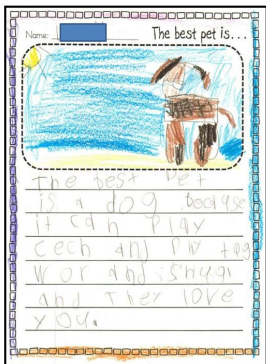 Name:
The best pet is...
The best pet
is a dog becase
it can play
cech and Ply tag
wor and snugl
and They love
you.